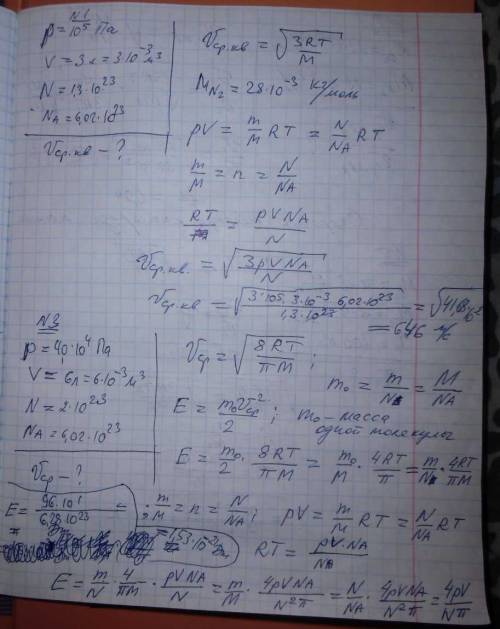 N1
p = 10⁵ Па
V = 3 л = 3·10⁻³ м³
N = 1,3·10²³
N_A = 6,02·10²³
v ср.кв – ?
v ср.кв = √(3RT/M)
M_N₂ = 28·10⁻³ кг/моль
pV = m/M RT = N/N_A RT
m/M = n = N/N_A
RT = pVN_A/N
v ср.кв. = √(3pVN_A/N)
v ср.кв = √(3·10⁵·3·10⁻³·6,02·10²³/1,3·10²³) =
= 646 м/с
N3
p = 40·10⁴ Па
V = 6л = 6·10⁻³ м³
N = 2·10²³
N_A = 6,02·10²³
v ср – ?
v ср = √(8RT/πM) ;
m₀ = m/N = M/N_A
E = m₀v ср²/2 ; m₀ – масса
одной молекулы
E = m₀/2 · 8RT/πM = m₀/M · 4RT/π = m/N · 4RT/πM
; m/M = n = N/N_A ; pV = m/M RT = N/N_A RT
RT = pV·N_A/N_A
E = m/N · 4/πM · pVN_A/N = m/M · 4pVN_A/N²π = N/N_A · 4pVN_A/N²π = 4pV/Nπ